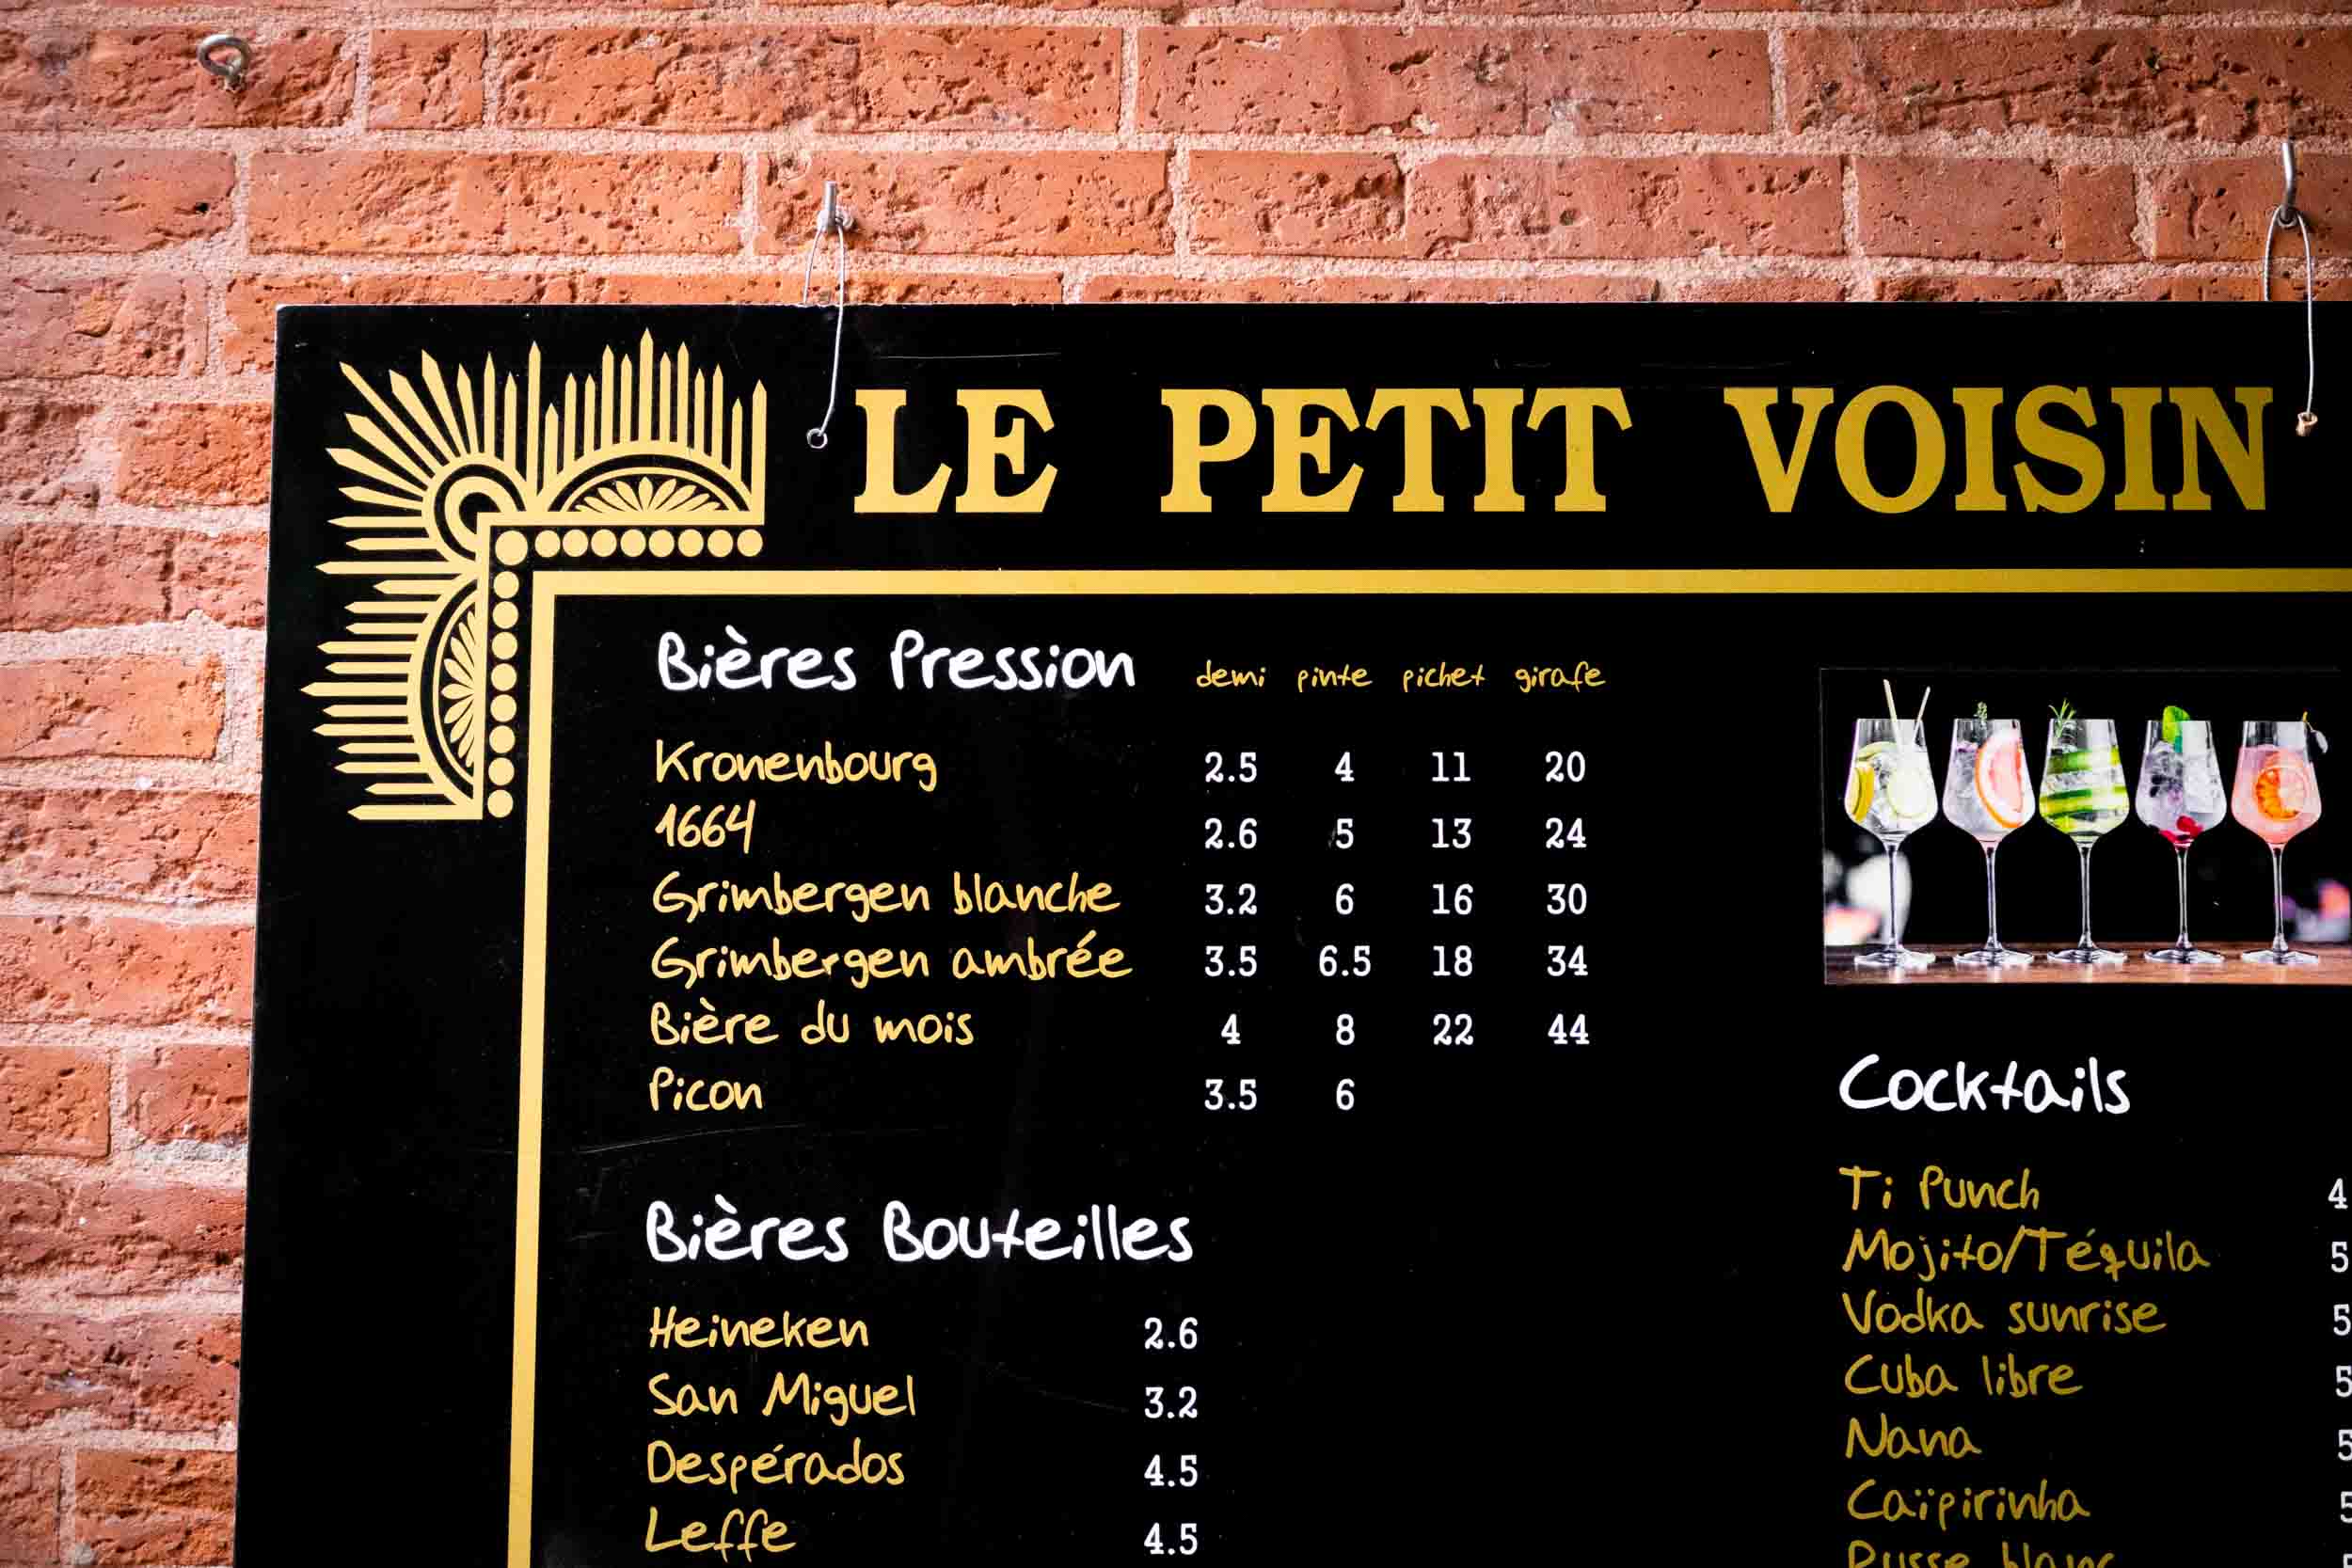 LE PETIT VOISIN
Bières Pression demi pinte pichet girafe
Kronenbourg 2.5 4 11 20
1664 2.6 5 13 24
Grimbergen blanche 3.2 6 16 30
Grimbergen ambrée 3.5 6.5 18 34
Bière du mois 4 8 22 44
Picon 3.5 6
Bières Bouteilles
Heineken 2.6
San Miguel 3.2
Despérados 4.5
Leffe 4.5
Cocktails
Ti Punch 4
Mojito/Téquila 5
Vodka sunrise 5
Cuba libre 5
Nana 5
Caïpirinha 5
Russe blanc